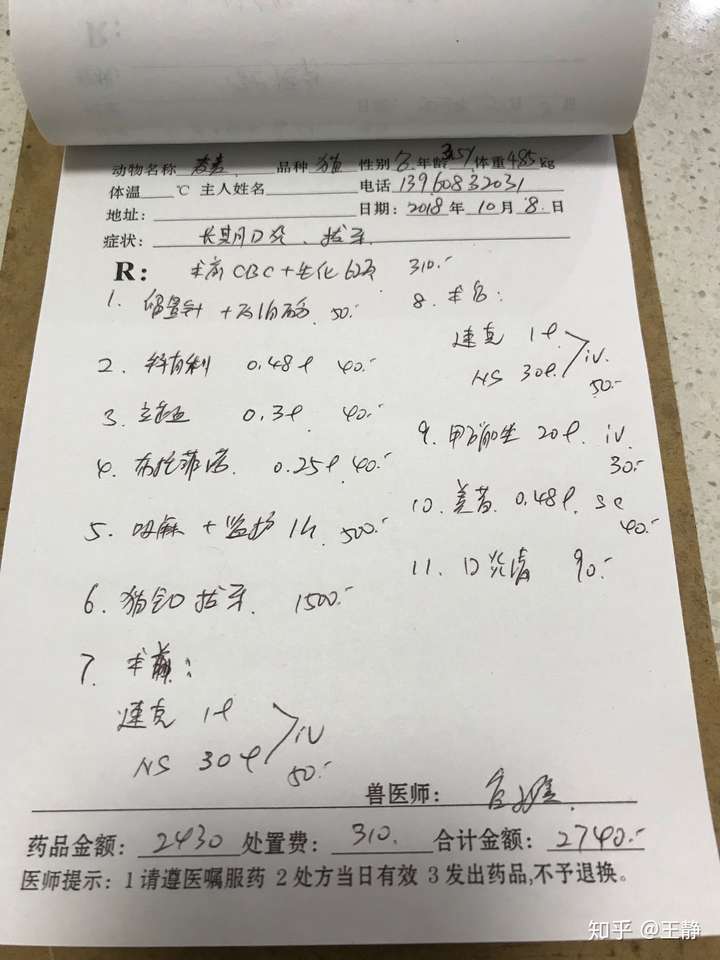 动物名称 麦麦 品种 猫 性别 年龄 3.5y 体重 4.85 kg
体温 ℃ 主人姓名 电话 13960832031
地址: 日期: 2018 年 10 月 8 日
症状: 长期口炎、拔牙
R: 术前CBC+生化 310.-
1. 留置针 + 50.-
2. 0.48 40.-
3. 0.3 40.-
4. 布托啡诺 0.25 40.-
5. 吸麻 + 监护 1h 500.-
6. 猫全口拔牙. 1500.-
7. 术前:
速克 1
NS 30
iv
50.-
8. 术后:
速克 1
NS 30
iv.
50.-
9. 甲硝唑 20 iv.
30.-
10. 美昔 0.48 sc
40.-
11. 口炎清 90.-
兽医师:
药品金额: 2430 处置费: 310. 合计金额: 2740.-
医师提示: 1请遵医嘱服药 2处方当日有效 3发出药品,不予退换。
知乎 @王静